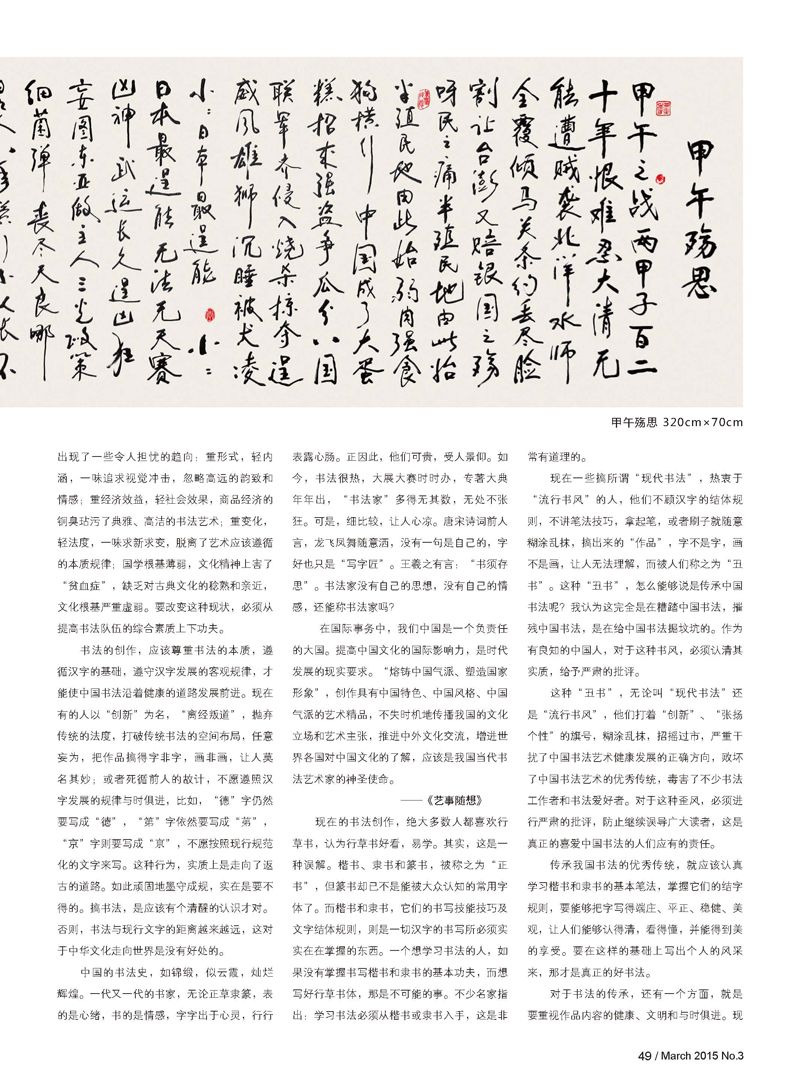 甲午殇思
甲午之战两甲子百二
十年恨难忍大清无
能遭贼袭北洋水师
全覆倾马关条约丢尽脸
割让台澎又赔银国之殇
呀民之痛半殖民地由此始
半殖民地由此始弱肉强食
狗横行中国成了大蛋
糕招来强盗争瓜分八国
联军齐侵入烧杀掠夺逞
威风雄狮沉睡被犬凌
小:日本最逞能 小:
日本最逞能无法无天赛
凶神武运长久逞凶狂
妄图东亚做主人三光政策
细菌弹丧尽天良哪
甲午殇思 320cm×70cm
出现了一些令人担忧的趋向：重形式，轻内
涵，一味追求视觉冲击，忽略高远的韵致和
情感；重经济效益，轻社会效果，商品经济的
铜臭玷污了典雅、高洁的书法艺术；重变化，
轻法度，一味求新求变，脱离了艺术应该遵循
的本质规律；国学根基薄弱，文化精神上害了
“贫血症”，缺乏对古典文化的稔熟和亲近，
文化根基严重虚弱。要改变这种现状，必须从
提高书法队伍的综合素质上下功夫。
书法的创作，应该尊重书法的本质，遵
循汉字的基础，遵守汉字发展的客观规律，才
能使中国书法沿着健康的道路发展前进。现在
有的人以“创新”为名，“离经叛道”，抛弃
传统的法度，打破传统书法的空间布局，任意
妄为，把作品搞得字非字，画非画，让人莫
名其妙；或者死循前人的故计，不愿遵照汉
字发展的规律与时俱进，比如，“德”字仍然
要写成“德”，“第”字依然要写成“苐”，
“京”字则要写成“亰”，不愿按照现行规范
化的文字来写。这种行为，实质上是走向了返
古的道路。如此顽固地墨守成规，实在是要不
得的。搞书法，是应该有个清醒的认识才对。
否则，书法与现行文字的距离越来越远，这对
于中华文化走向世界是没有好处的。
中国的书法史，如锦缎，似云霞，灿烂
辉煌。一代又一代的书家，无论正草隶篆，表
的是心绪，书的是情感，字字出于心灵，行行
表露心肠。正因此，他们可贵，受人景仰。如
今，书法很热，大展大赛时时办，专著大典
年年出，“书法家”多得无其数，无处不张
狂。可是，细比较，让人心凉。唐宋诗词前人
言，龙飞凤舞随意洒，没有一句是自己的，字
好也只是“写字匠”。王羲之有言：“书须存
思”。书法家没有自己的思想，没有自己的情
感，还能称书法家吗？
在国际事务中，我们中国是一个负责任
的大国。提高中国文化的国际影响力，是时代
发展的现实要求。“熔铸中国气派、塑造国家
形象”，创作具有中国特色、中国风格、中国
气派的艺术精品，不失时机地传播我国的文化
立场和艺术主张，推进中外文化交流，增进世
界各国对中国文化的了解，应该是我国当代书
法艺术家的神圣使命。
——《艺事随想》
现在的书法创作，绝大多数人都喜欢行
草书，认为行草书好看，易学。其实，这是一
种误解。楷书、隶书和篆书，被称之为“正
书”，但篆书却已不是能被大众认知的常用字
体了。而楷书和隶书，它们的书写技能技巧及
文字结体规则，则是一切汉字的书写所必须实
实在在掌握的东西。一个想学习书法的人，如
果没有掌握书写楷书和隶书的基本功夫，而想
写好行草书体，那是不可能的事。不少名家指
出：学习书法必须从楷书或隶书入手，这是非
常有道理的。
现在一些搞所谓“现代书法”，热衷于
“流行书风”的人，他们不顾汉字的结体规
则，不讲笔法技巧，拿起笔，或者刷子就随意
糊涂乱抹，搞出来的“作品”，字不是字，画
不是画，让人无法理解，而被人们称之为“丑
书”。这种“丑书”，怎么能够说是传承中国
书法呢？我认为这完全是在糟踏中国书法，摧
残中国书法，是在给中国书法掘坟坑的。作为
有良知的中国人，对于这种书风，必须认清其
实质，给予严肃的批评。
这种“丑书”，无论叫“现代书法”还
是“流行书风”，他们打着“创新”、“张扬
个性”的旗号，糊涂乱抹，招摇过市，严重干
扰了中国书法艺术健康发展的正确方向，败坏
了中国书法艺术的优秀传统，毒害了不少书法
工作者和书法爱好者。对于这种歪风，必须进
行严肃的批评，防止继续误导广大读者，这是
真正的喜爱中国书法的人们应有的责任。
传承我国书法的优秀传统，就应该认真
学习楷书和隶书的基本笔法，掌握它们的结字
规则，要能够把字写得端庄、平正、稳健、美
观，让人们能够认得清，看得懂，并能得到美
的享受。要在这样的基础上写出个人的风采
来，那才是真正的好书法。
对于书法的传承，还有一个方面，就是
要重视作品内容的健康、文明和与时俱进。现
49 / March 2015 No.3